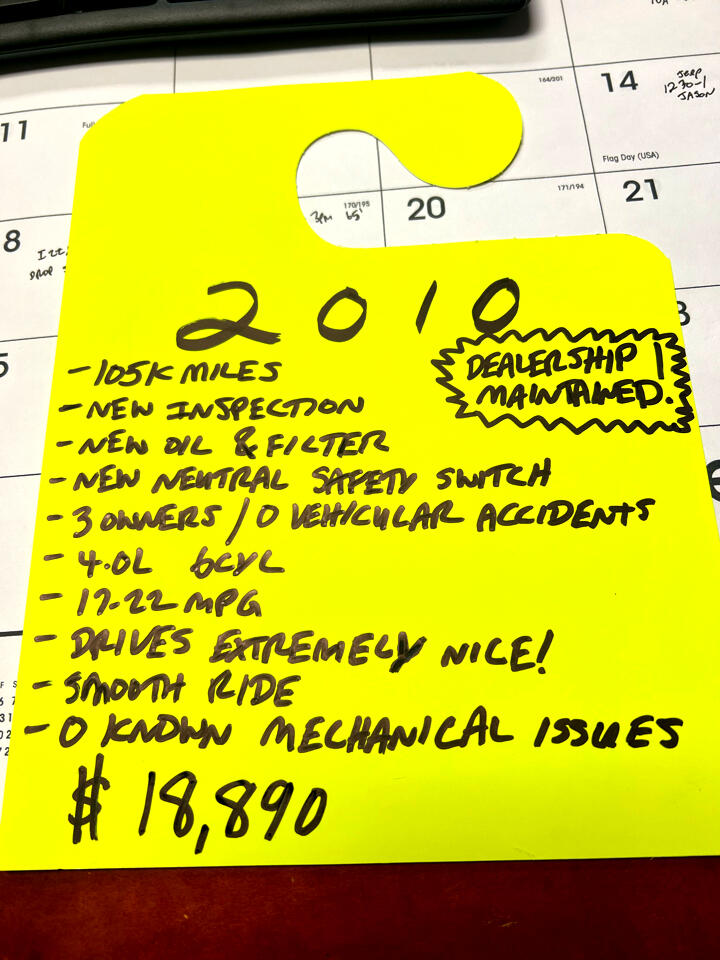 164/201
14
SERP
1230-1
JASON
11
Full
Flag Day (USA)
170/195
171/194
3PM 65'
20
21
8
DROP
2010
DEALERSHIP
MAINTAINED.
-105K MILES
-NEW INSPECTION
-NEW OIL & FILTER
-NEW NEUTRAL SAFETY SWITCH
-3 OWNERS / 0 VEHICULAR ACCIDENTS
-4.0L 6CYL
-17-22 MPG
-DRIVES EXTREMELY NICE!
-SMOOTH RIDE
-0 KNOWN MECHANICAL ISSUES
$18,890